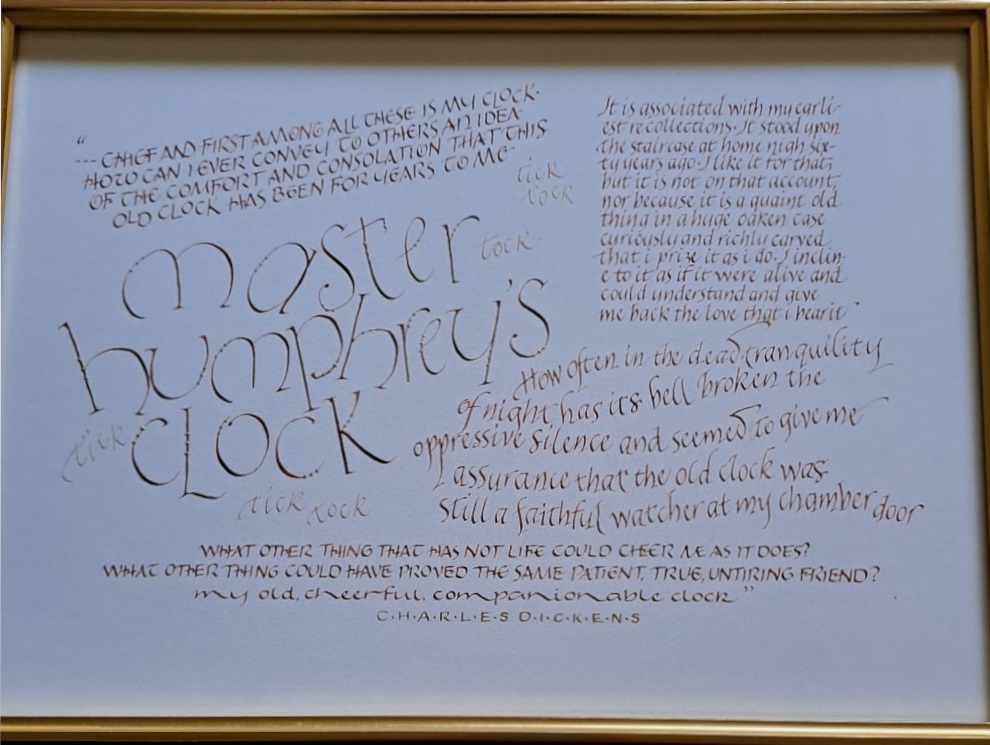 "
--- CHIEF AND FIRST AMONG ALL THESE IS MY CLOCK·
HOW CAN I EVER CONVEY TO OTHERS AN IDEA
OF THE COMFORT AND CONSOLATION THAT THIS
OLD CLOCK HAS BEEN FOR YEARS TO ME·
tick
tock
master
tock
humphrey's
tick
CLOCK
tick tock
It is associated with my earli-
est recollections. It stood upon
the staircase at home nigh six-
ty years ago. I like it for that;
but it is not on that account,
nor because it is a quaint old
thing in a huge oaken case
curiously and richly carved
that i prize it as i do. I inclin-
e to it as if it were alive and
could understand and give
me back the love that i bear it
How often in the dead tranquility
of night, has its bell broken the
oppressive silence and seemed to give me
assurance that the old clock was
still a faithful watcher at my chamber door
WHAT OTHER THING THAT HAS NOT LIFE COULD CHEER ME AS IT DOES?
WHAT OTHER THING COULD HAVE PROVED THE SAME PATIENT, TRUE, UNTIRING FRIEND?
my old, cheerful, companionable clock "
C·H·A·R·L·E·S D·I·C·K·E·N·S